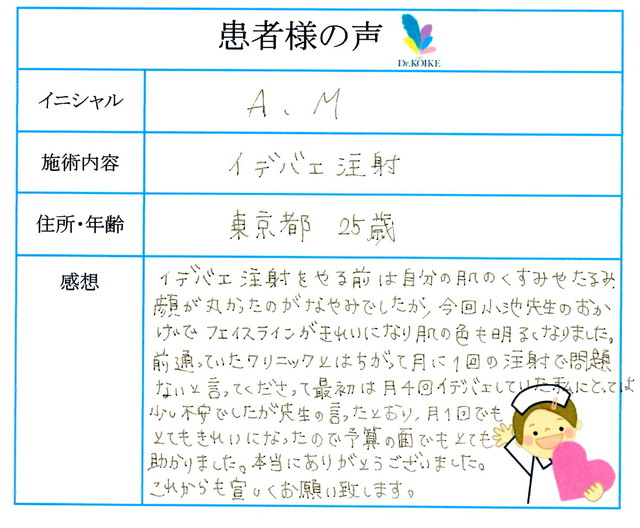 患者様の声
Dr.KOIKE
イニシャル A、M
施術内容 イデバエ注射
住所・年齢 東京都 25歳
感想
イデバエ注射をやる前は自分の肌のくすみやたるみ、
顔が丸かったのがなやみでしたが、今回小池先生のおか
げでフェイスラインがきれいになり肌の色も明るくなりました。
前通っていたクリニックとはちがって月に1回の注射で問題
ないと言ってくださって最初は月4回イデバエしていた私にとっては
少し不安でしたが先生の言ったとおり、月1回でも
とてもきれいになったので予算の面でもとても
助かりました。本当にありがとうございました。
これからも宜しくお願い致します。